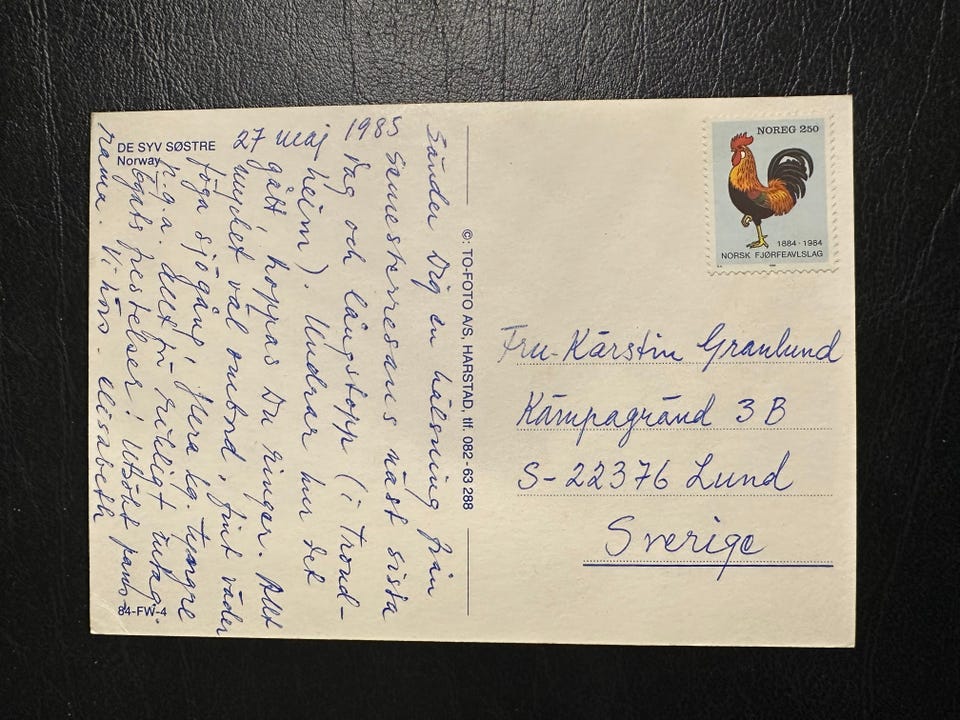 DE SYV SØSTRE
Norway
27 maj 1985
Sänder Dig en hälsning från
semesterresans näst sista
dag och långstopp (i Trond-
heim). Undrar hur det
gått, hoppas Du ringer. Allt
mycket väl ombord, fint väder
föga sjögång, flera kg. tyngre
p.g.a. alltför riktigt intag.
ögats frestelser! Utsökt pano-
rama. Vi hörs. Elisabeth
84-FW-4
©: TO-FOTO A/S, HARSTAD, tlf. 082-63 288
NOREG 250
1884 · 1984
NORSK FJØRFEAVLSLAG
Fru Kärstin Granlund
Kämpagränd 3 B
S-22376 Lund
Sverige